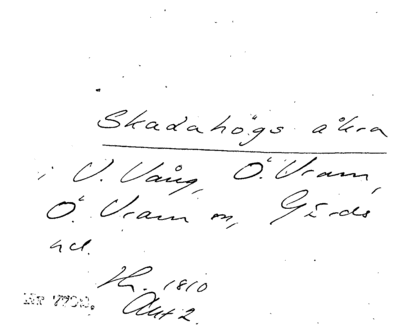 Skadahögs åkra
i V. Vång, Ö. Vram,
Ö. Vram sn, Gärds
hd.
Hr. 1810
Akt 2.